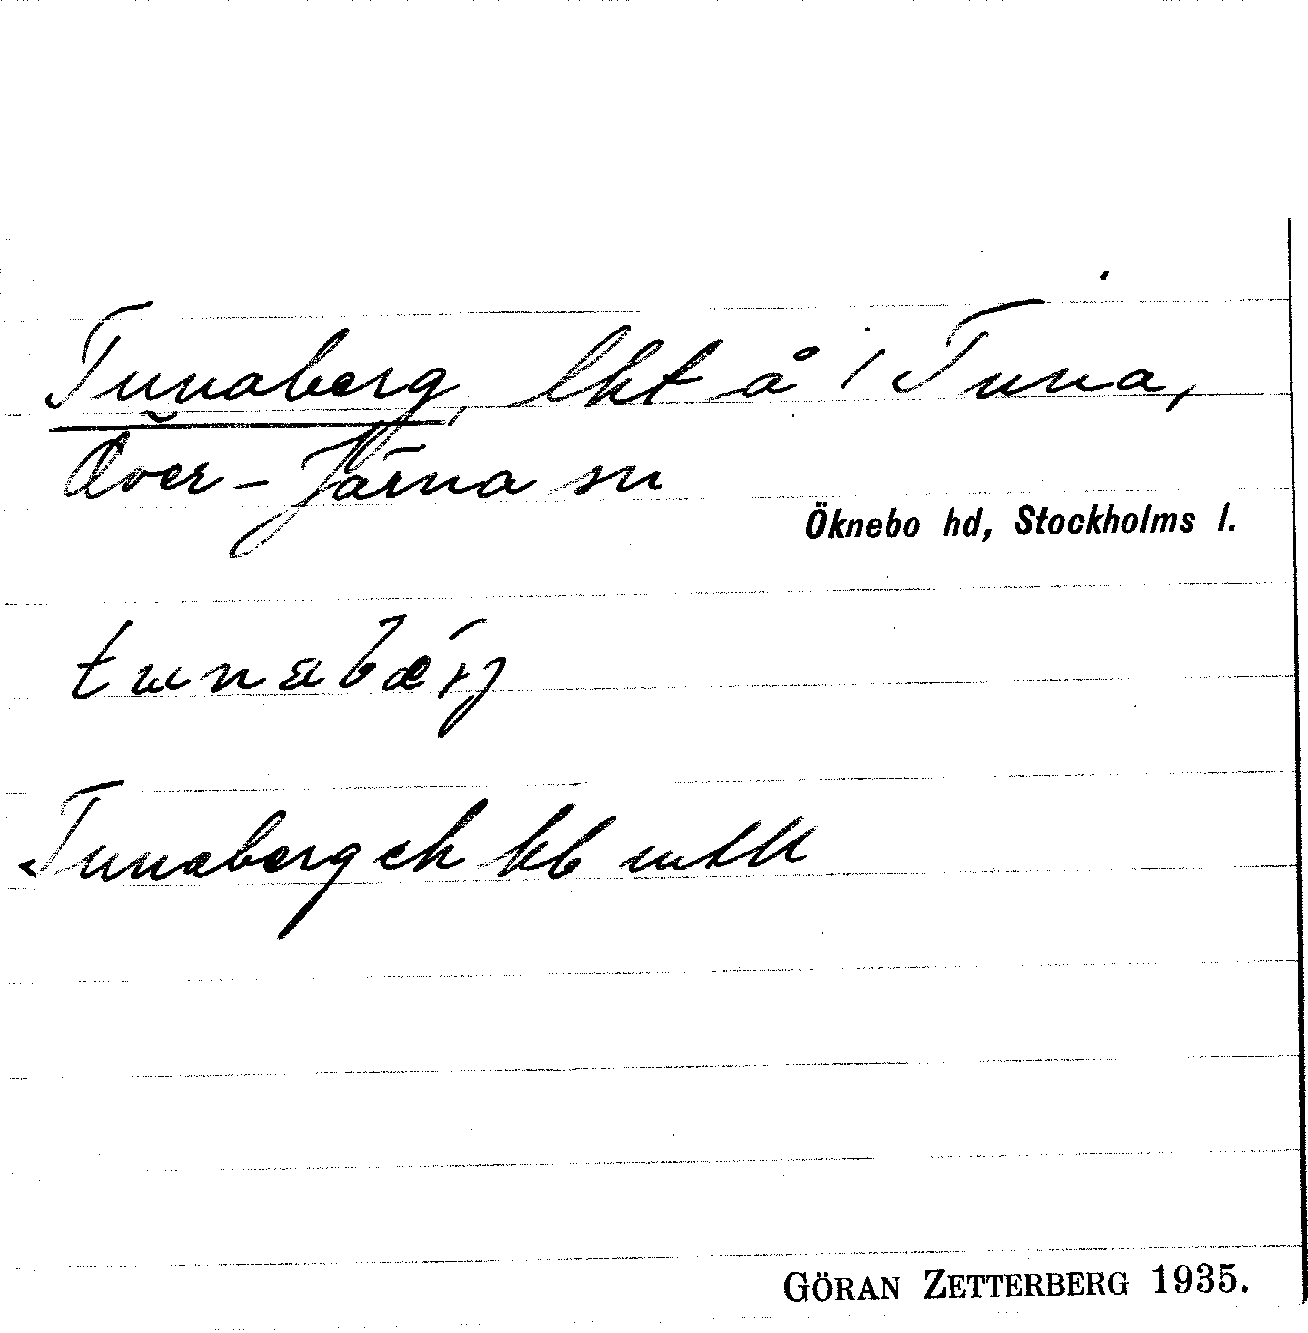 Tunaberg, lht å 1 Tuna,
Över-Järna sn
Öknebo hd, Stockholms l.
Tunaberg ek kb
GÖRAN ZETTERBERG 1935.